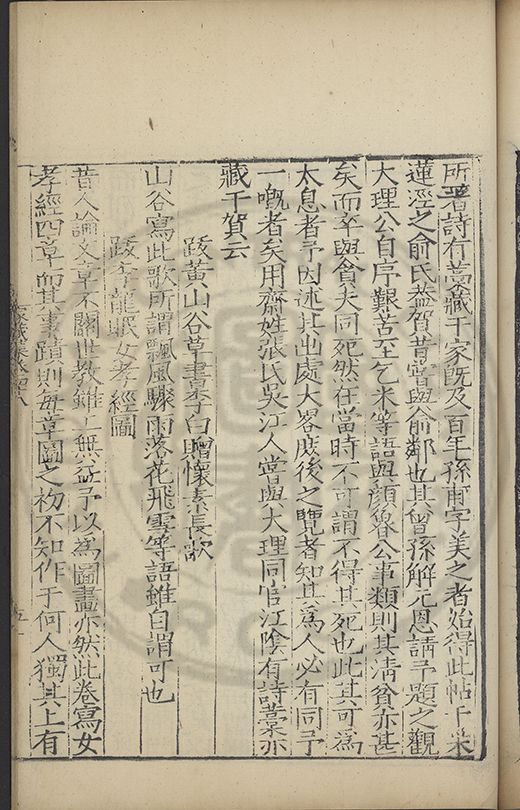 所著詩有藁藏于家旣及百年孫甫字美之者始得此帖于朱
蓮涇之俞氏葢賀昔嘗與俞鄰也其曾孫解元恩請予題之觀
大理公自序艱苦至乞米等語與顏魯公事類則其清貧亦甚
矣而卒與貧夫同死然在當時不可謂不得其死也此其可爲
太息者予因述其出處大畧庶後之覽者知其爲人必有同予
一嘅者矣用齋姓張氏吳江人嘗與大理同官江陰有詩藁亦
藏于賀云
跋黃山谷草書李白贈懷素長歌
山谷寫此歌所謂飄風驟雨落花飛雪等語雖自謂可也
跋李龍眠女孝經圖
昔人論文章不關世教雖工無益予以爲圖畫亦然此卷寫女
孝經四章而其事蹟則每章圖之初不知作于何人獨其上有